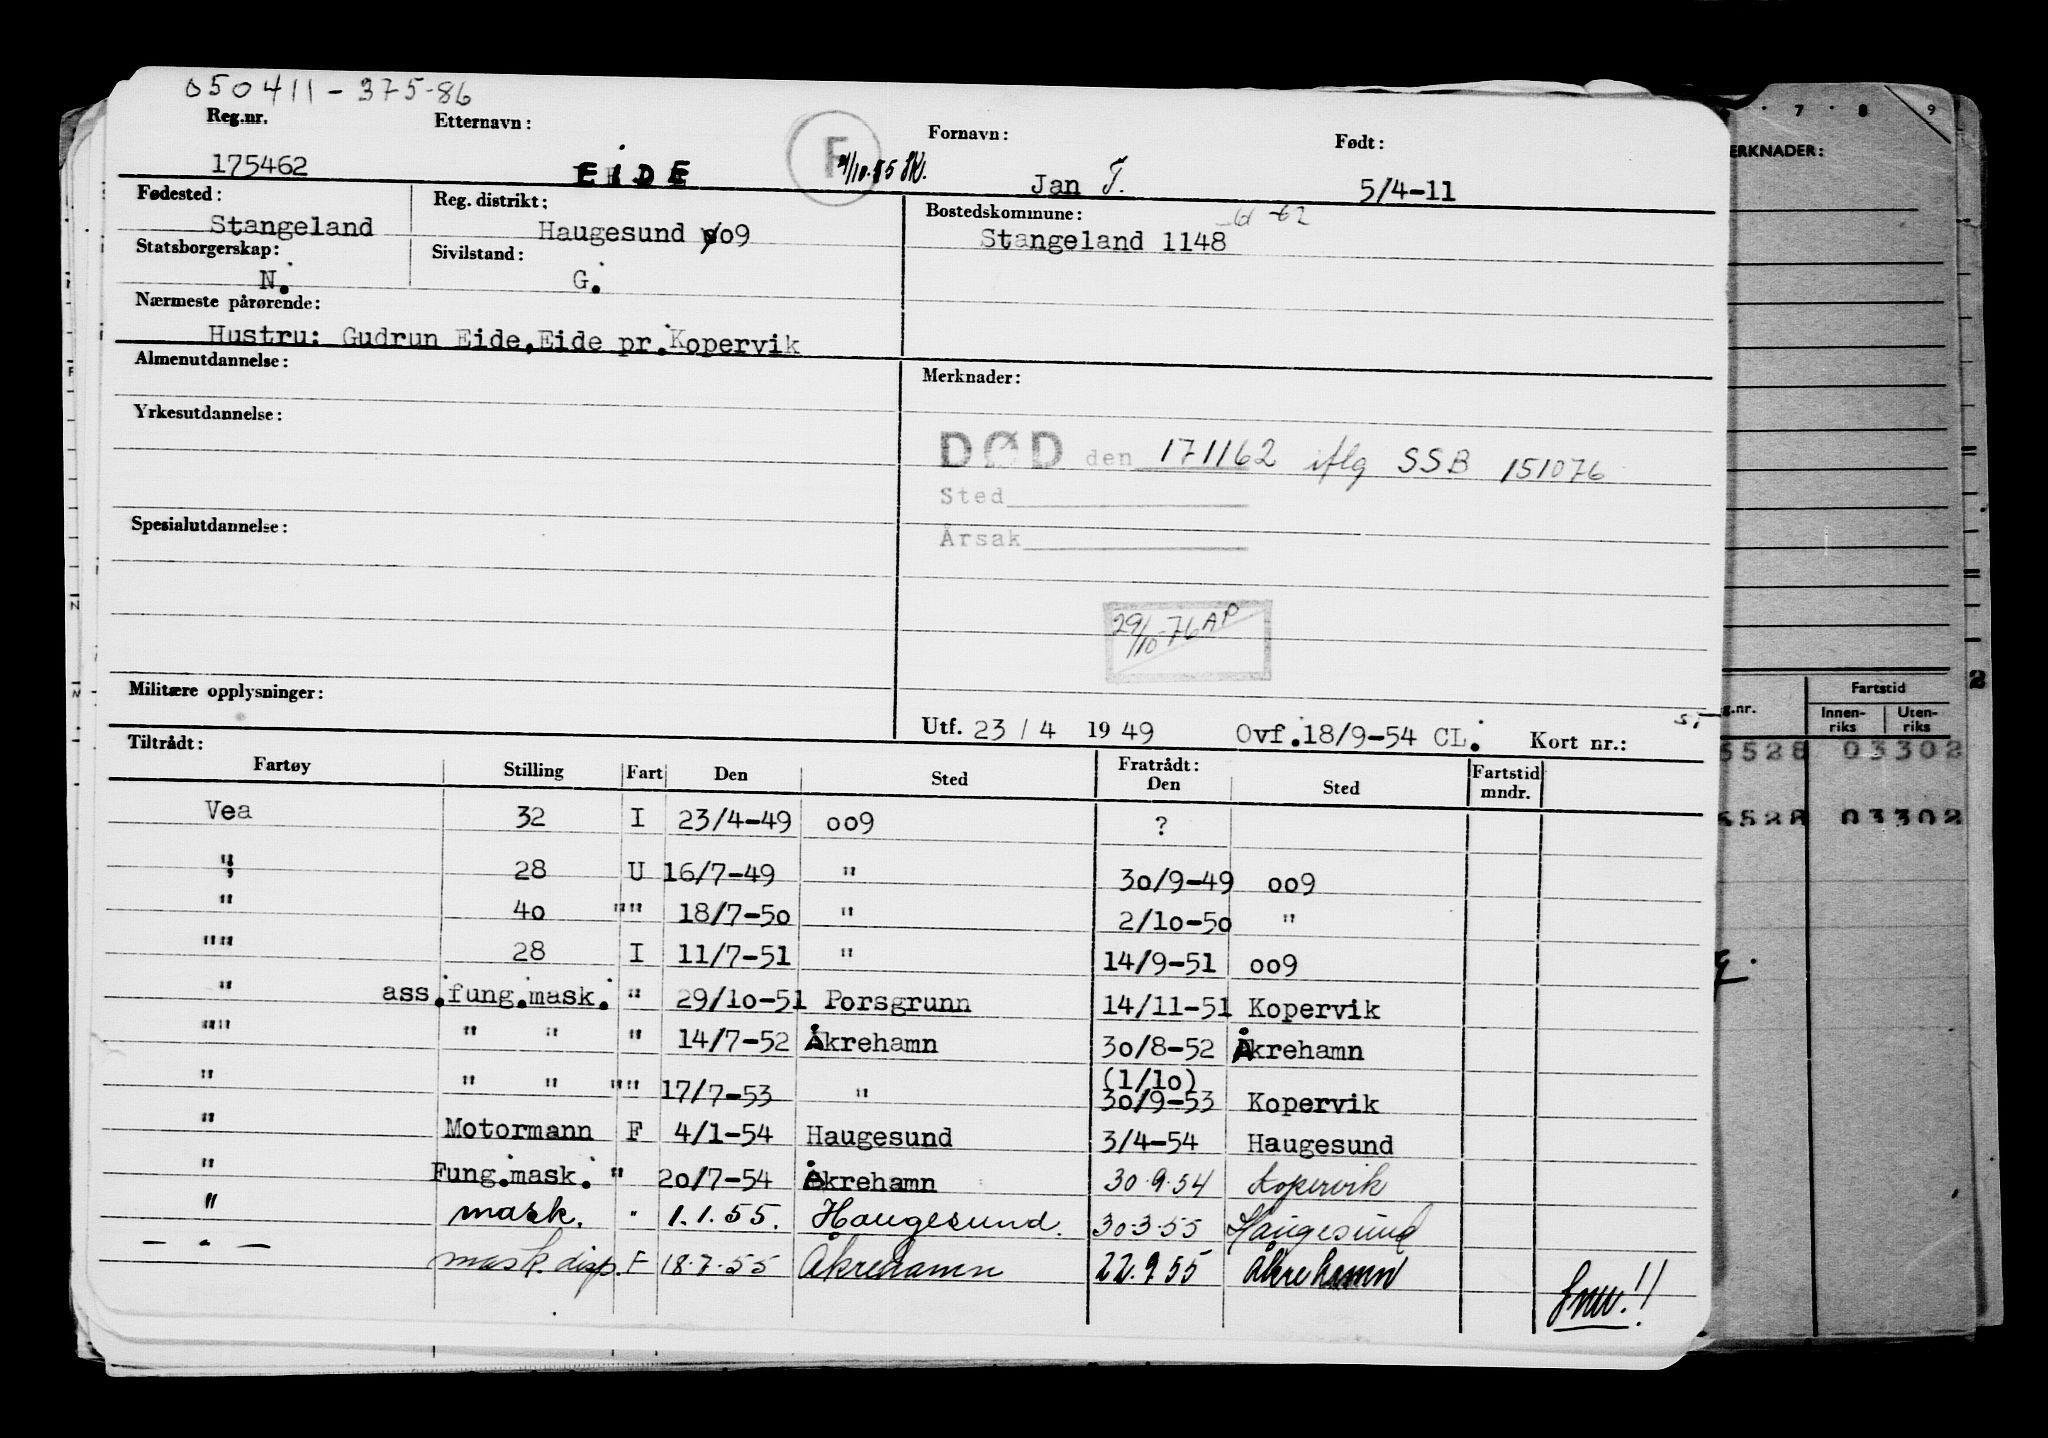 050411-375-86
Reg.nr. Etternavn: Fornavn: Født:
175462 EIDE F 21/10.85 Jan T. 5/4-11
Fødested: Reg. distrikt: Bostedskommune:
Stangeland Haugesund 009 Stangeland 1148
Statsborgerskap: Sivilstand:
N. G.
Nærmeste pårørende:
Hustru: Gudrun Eide, Eide pr. Kopervik
Almenutdannelse: Merknader:
Yrkesutdannelse:
DØD den 171162 iflg SSB 151076
Sted
Spesialutdannelse:
Årsak
29/10-76 AP
Militære opplysninger:
Utf. 23 / 4 1949 Ovf. 18/9-54 CL. Kort nr.:
Tiltrådt: Fratrådt:
Fartøy Stilling Fart Den Sted Den Sted Fartstid mndr.
Vea 32 I 23/4-49 oo9 ?
" 28 U 16/7-49 " 3o/9-49 oo9
" 4o "" 18/7-5o " 2/1o-5o "
"" 28 I 11/7-51 " 14/9-51 oo9
" ass.fung.mask. " 29/1o-51 Porsgrunn 14/11-51 Kopervik
"" " " " 14/7-52 Åkrehamn 3o/8-52 Åkrehamn
(1/1o)
" " " "" 17/7-53 " 3o/9-53 Kopervik
" Motormann F 4/1-54 Haugesund 3/4-54 Haugesund
" Fung.mask. " 2o/7-54 Åkrehamn 30.9.54 Kopervik
" mask. " 1.1.55. Haugesund. 30.3.55 Haugesund
— " — mask.disp. F 18.7.55 Åkrehamn 22.9.55 Åkrehamn
snu!!
7 8 9
ERKNADER:
2
g.nr. Fartstid
Innen-riks Uten-riks
5528 03302
5528 03302